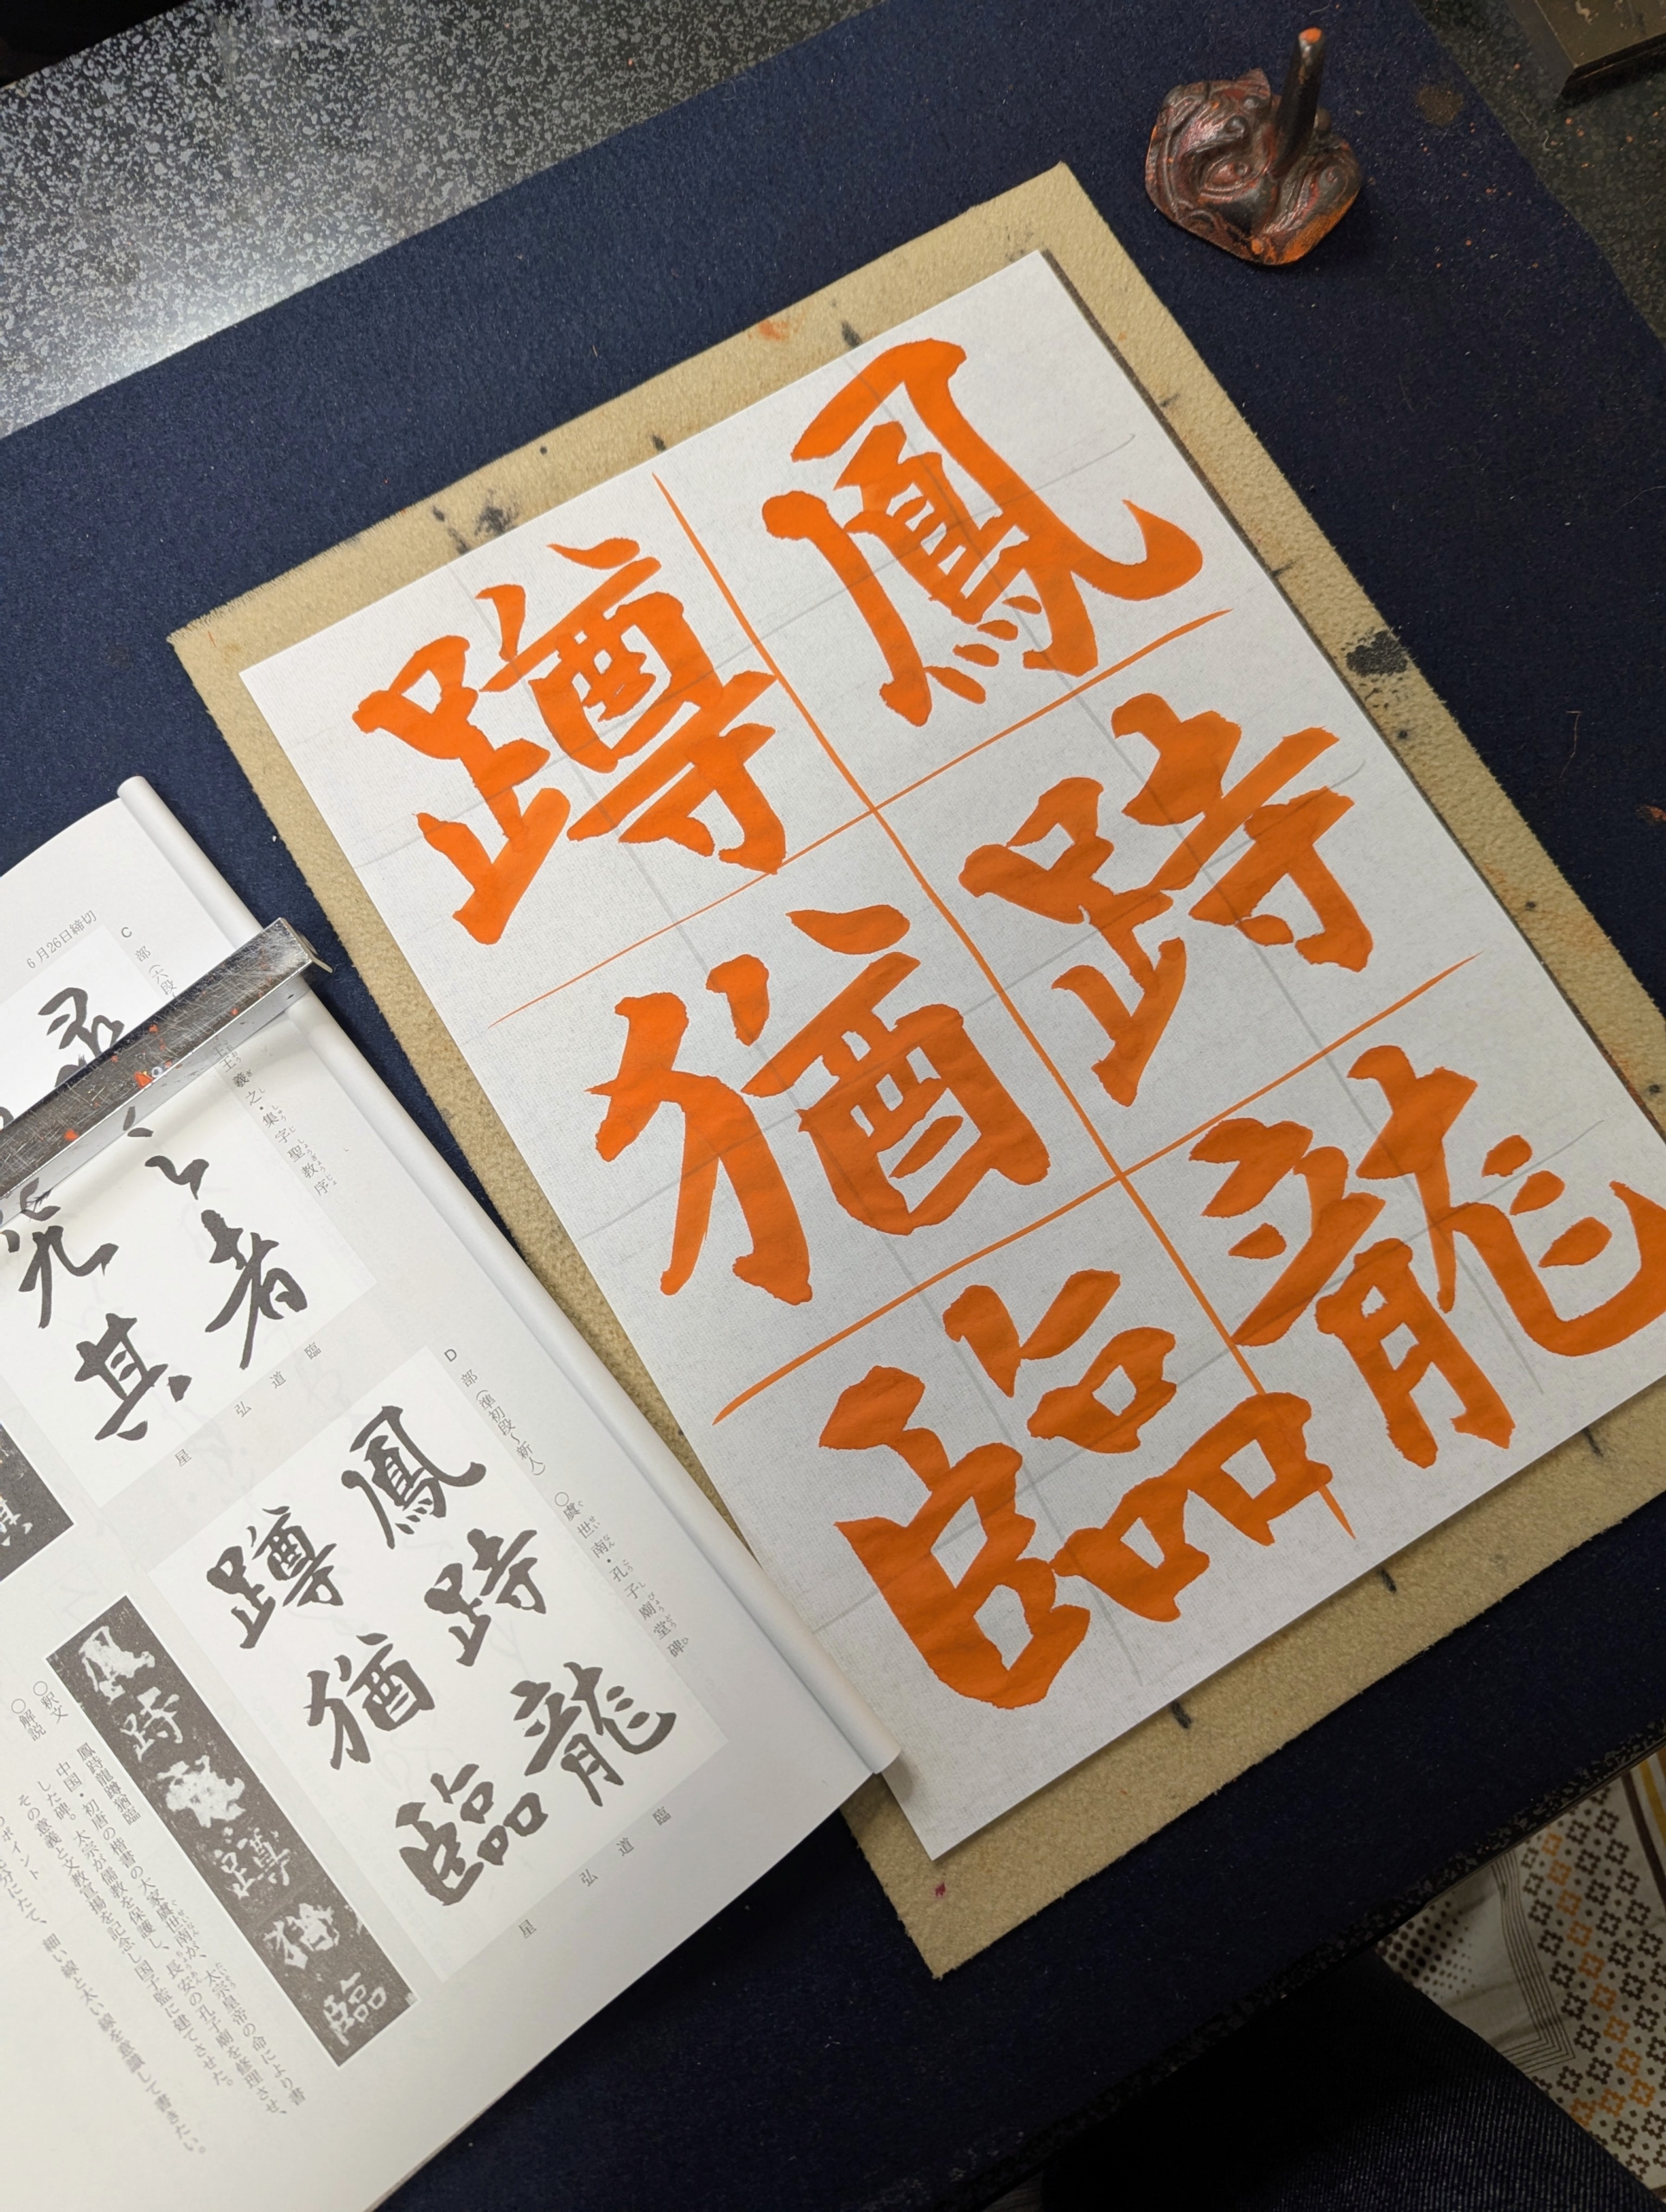 鳳跱龍
蹲猶臨
6月26日締切
C部(六段
王羲之・集字聖教序
之者
其
臨
道
弘
星
D部(準初段〜新人)
○虞世南・孔子廟堂碑
鳳跱龍
蹲猶臨
臨
道
弘
星
鳳跱龍蹲猶臨
○釈文 鳳跱龍蹲猶臨
○解説 中国・初唐の楷書の大家虞世南が、太宗皇帝の命により書
した碑。太宗が儒教を保護し、長安の孔子廟を修理させ、
その意義と文教宣揚を記念し国子監に建てさせた。
ポイント
分にたて、細い線と太い線を意識して書きたい。